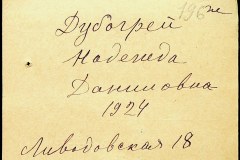 196 ж
Дубогрей
Надежда
Даниловна
1924
Ливодовская 18